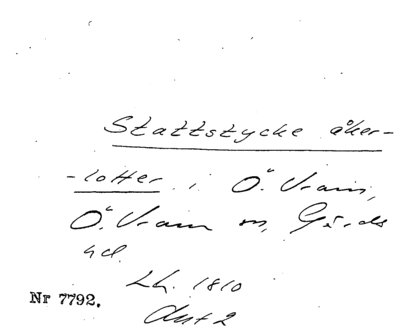 Stattstycke åker-
-lotter i Ö. Vram,
Ö. Vram sn, Gärds
hd.
Lh. 1810
Nr 7792.
Akt 2